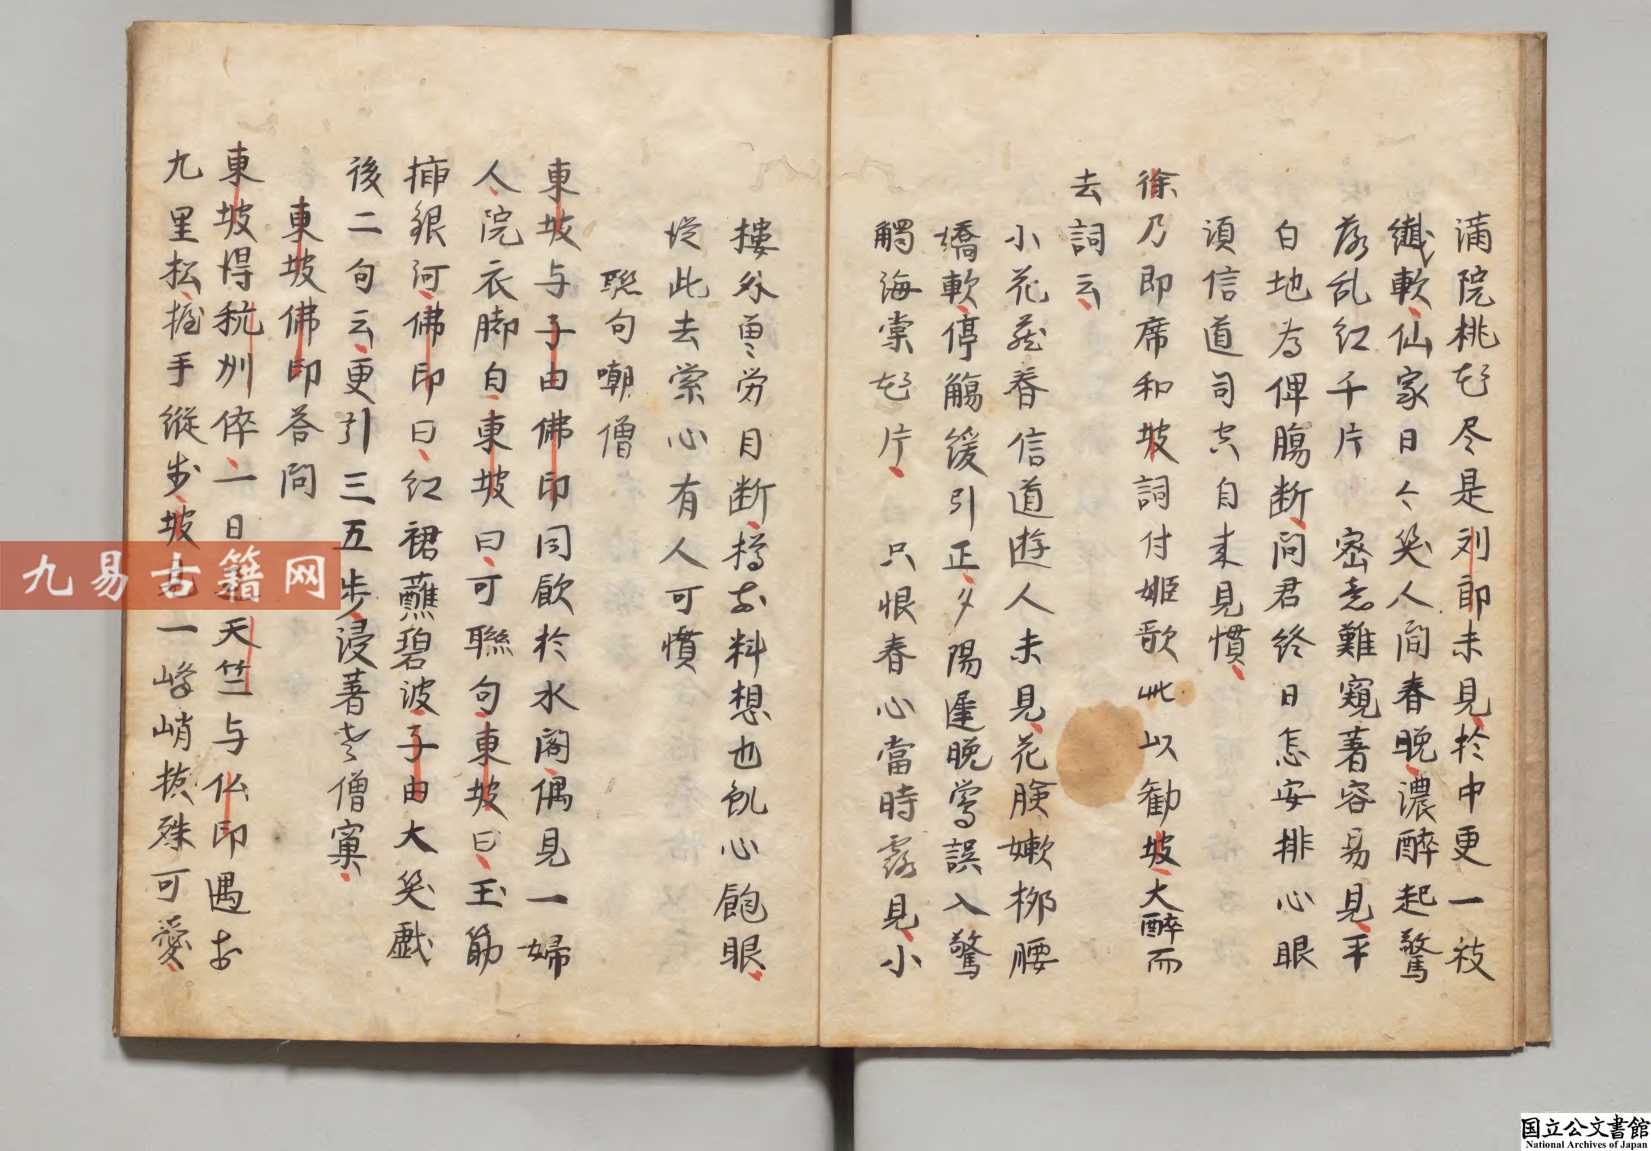 滿院桃花尽是刘郎未見於中更一枝
纖軟仙家日々笑人間春晚濃醉起驚
落乱紅千片　密意難窺著容易見平
白地为俾腸断问君終日怎安排心眼
須信道司空自来見慣
徐乃即席和坡詞付姬歌此以勸坡大醉而
去詞云
小花蕊春信道遊人未見花臉嫩柳腰
嬌軟停觴緩引正夕陽遲晚鶯誤入驚
觸海棠花片　只恨春心當時露見小
樓外曽劳目断樽前料想也飢心飽眼
從此去縈心有人可慣
聮句嘲僧
東坡与子由佛印同飲於水阁偶見一婦
人浣衣脚白東坡曰可聯句東坡曰玉筋
揷銀河佛印曰红裙蘸碧波子由大笑戲
後二句云更引三五步浸著老僧窠
東坡佛印荅问
東坡得杭州倅一日天竺与仏印遇前
九里松握手縱步坡一峰峭拔殊可愛
九易古籍网
国立公文書館
National Archives of Japan